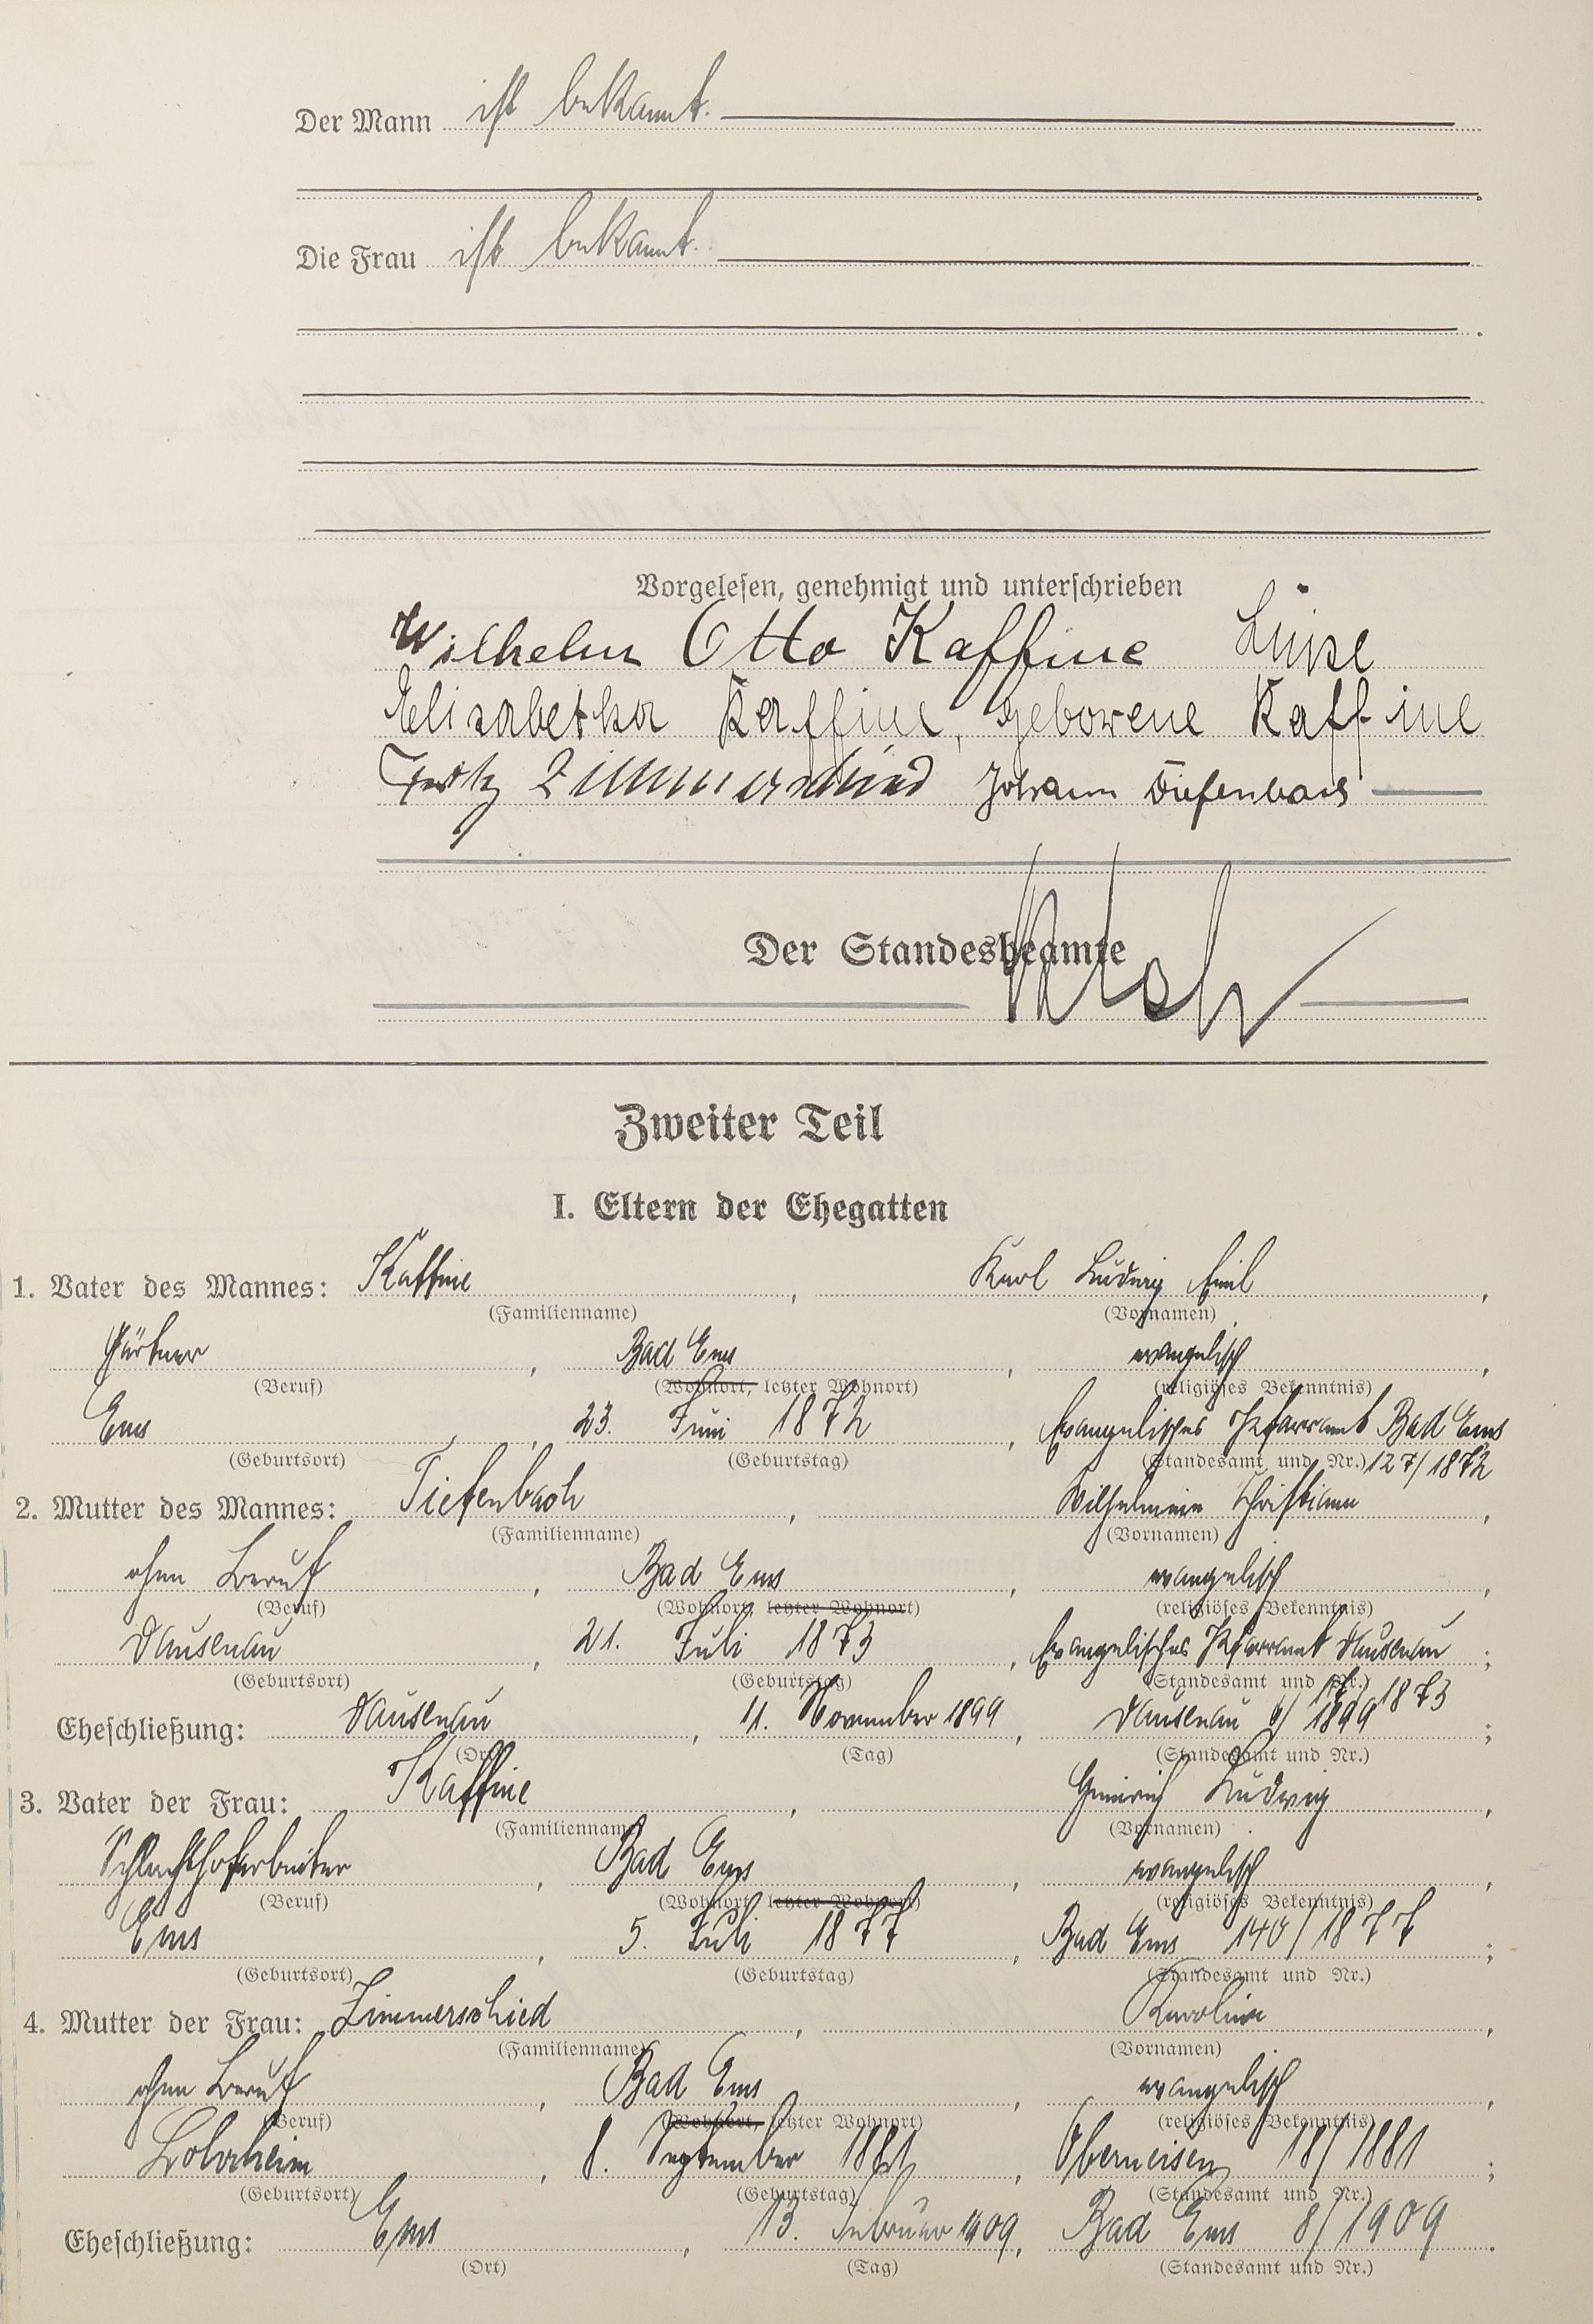 Der Mann ist bekannt.
Die Frau ist bekannt.
Vorgelesen, genehmigt und unterschrieben
Wilhelm Otto Kaffine Luise
Elisabetha Kaffine, geborene Kaffine
Fritz Zimmerschied Johann Tiefenbach
Der Standesbeamte
Zweiter Teil
I. Eltern der Ehegatten
1. Vater des Mannes: Kaffine, Karl Ludwig Emil,
(Familienname) (Vornamen)
Gärtner, Bad Ems, evangelisch,
(Beruf) (Wohnort, letzter Wohnort) (religiöses Bekenntnis)
Ems, 23. Juni 1872, Evangelisches Pfarramt Bad Ems
(Geburtsort) (Geburtstag) (Standesamt und Nr.) 127/1872
2. Mutter des Mannes: Tiefenbach, Wilhelmine Christiane,
(Familienname) (Vornamen)
ohne Beruf, Bad Ems, evangelisch,
(Beruf) (Wohnort, letzter Wohnort) (religiöses Bekenntnis)
Dausenau, 21. Juli 1873, Evangelisches Pfarramt Dausenau;
(Geburtsort) (Geburtstag) (Standesamt und Nr.) 1873
Eheschließung: Dausenau, 11. November 1899, Dausenau 6/1899;
(Ort) (Tag) (Standesamt und Nr.)
3. Vater der Frau: Kaffine, Heinrich Ludwig,
(Familienname) (Vornamen)
Schlachthofarbeiter, Bad Ems, evangelisch,
(Beruf) (Wohnort, letzter Wohnort) (religiöses Bekenntnis)
Ems, 5. Juli 1877, Bad Ems 140/1877;
(Geburtsort) (Geburtstag) (Standesamt und Nr.)
4. Mutter der Frau: Zimmerschied, Karoline,
(Familienname) (Vornamen)
ohne Beruf, Bad Ems, evangelisch,
(Beruf) (Wohnort, letzter Wohnort) (religiöses Bekenntnis)
Lohrheim, 8. September 1881, Oberneisen 18/1881;
(Geburtsort) (Geburtstag) (Standesamt und Nr.)
Eheschließung: Ems, 13. Februar 1909, Bad Ems 8/1909.
(Ort) (Tag) (Standesamt und Nr.)